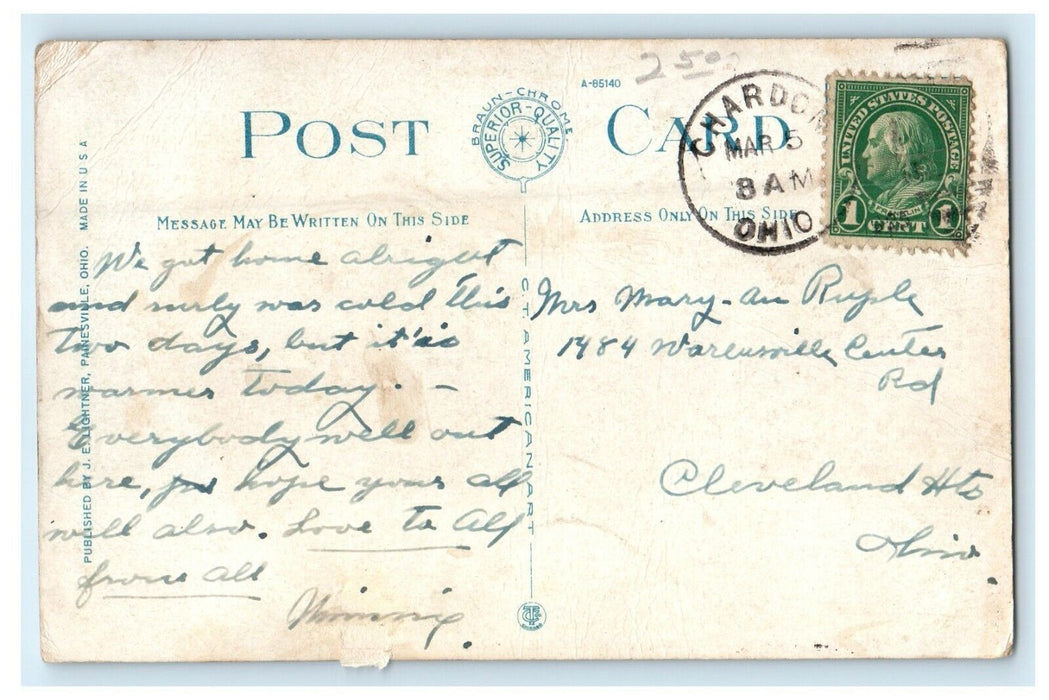 250
A-85140
POST CARD
BRAUN-CHROME
SUPERIOR-QUALITY
CHARDON
MAR 5
8 AM
OHIO
UNITED STATES POSTAGE
FRANKLIN
1 CENT 1
MESSAGE MAY BE WRITTEN ON THIS SIDE
ADDRESS ONLY ON THIS SIDE
PUBLISHED BY J. E. LIGHTNER, PAINESVILLE, OHIO. MADE IN U S A
We got home alright
and surly was cold this
two days, but it is
warmer today. –
Everybody well out
here, hope your all
well also. Love to All
from all
Winnie.
CTAMERICANART
Mrs Mary-an Ruple
1484 Warensville Center
Rd
Cleveland Hts
Ohio.